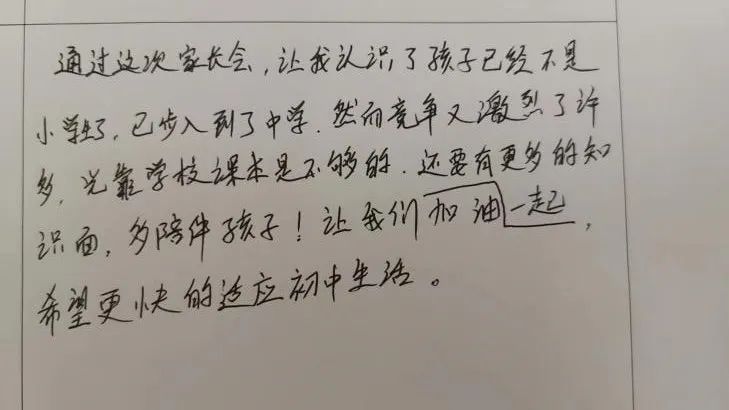 通过这次家长会,让我认识了孩子已经不是
小学生了,已步入到了中学.然而竞争又激烈了许
多,光靠学校课本是不够的.还要有更多的知
识面,多陪伴孩子!让我们加油一起,
希望更快的适应初中生活。